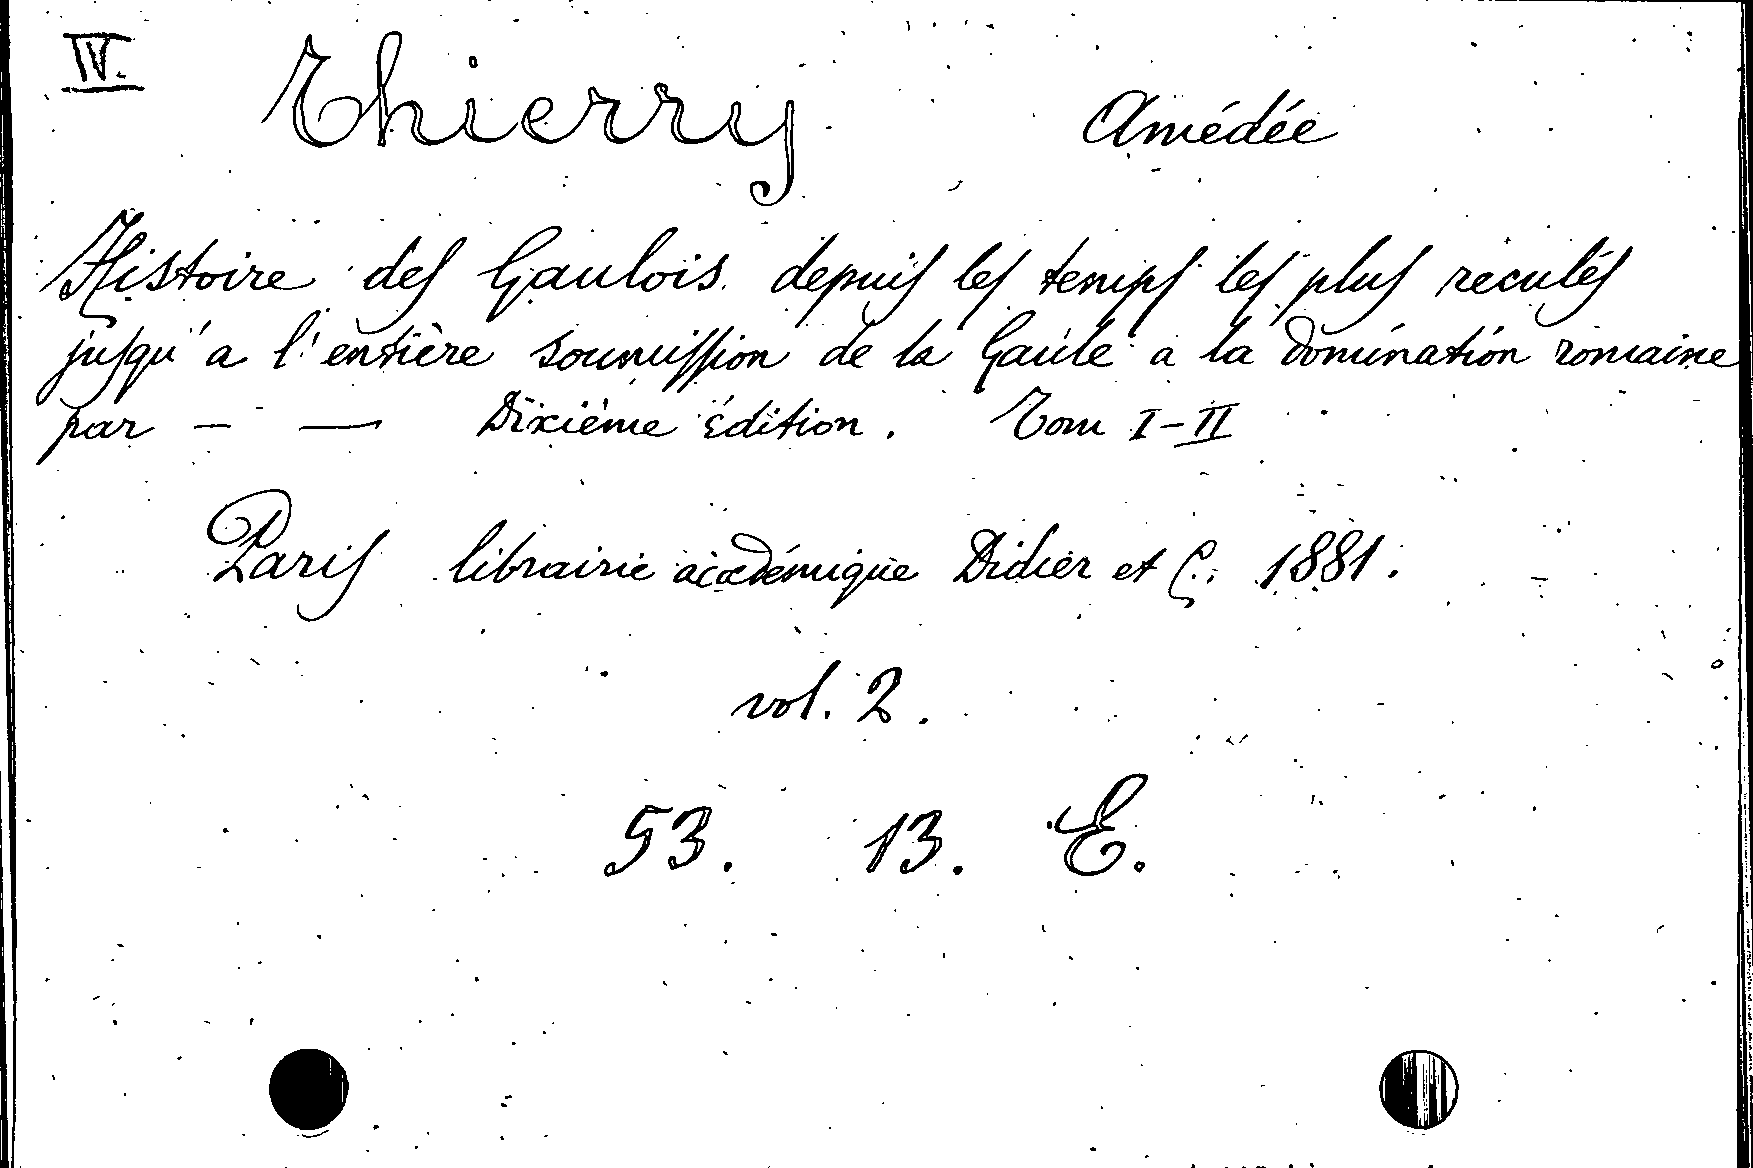 IV. Thierry Amédée
Histoire des Gaulois depuis les temps les plus reculés
jusqu'a l'entière soumission de la Gaule a la domination romaine
par — — Dixième édition. Tom I-II
Paris librairie académique Didier et C. 1881.
vol. 2.
53. 13. E.